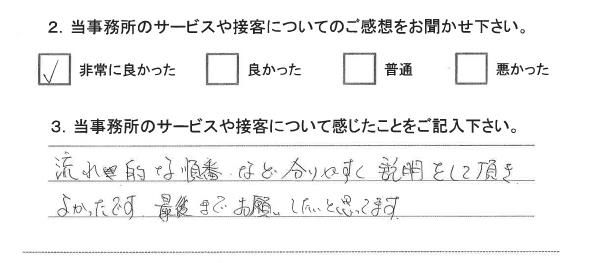 2．当事務所のサービスや接客についてのご感想をお聞かせ下さい。
非常に良かった 良かった 普通 悪かった
3．当事務所のサービスや接客について感じたことをご記入下さい。
流れ的な順番など分りやすく説明をして頂き
よかったです 最後までお願いしたいと思ってます